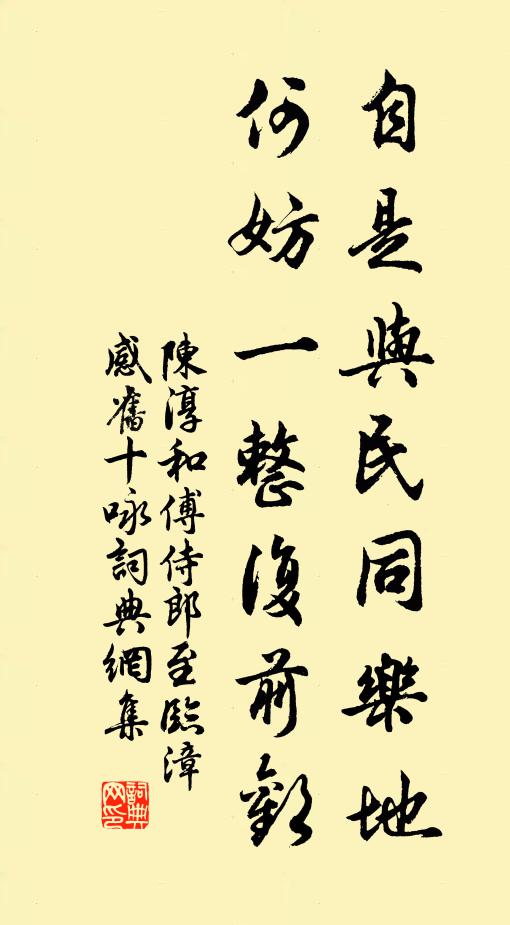 自是與民同樂地
何妨一整復前歡
陳淳和傅侍郎至臨漳
感舊十咏詞典網集
詞典网印